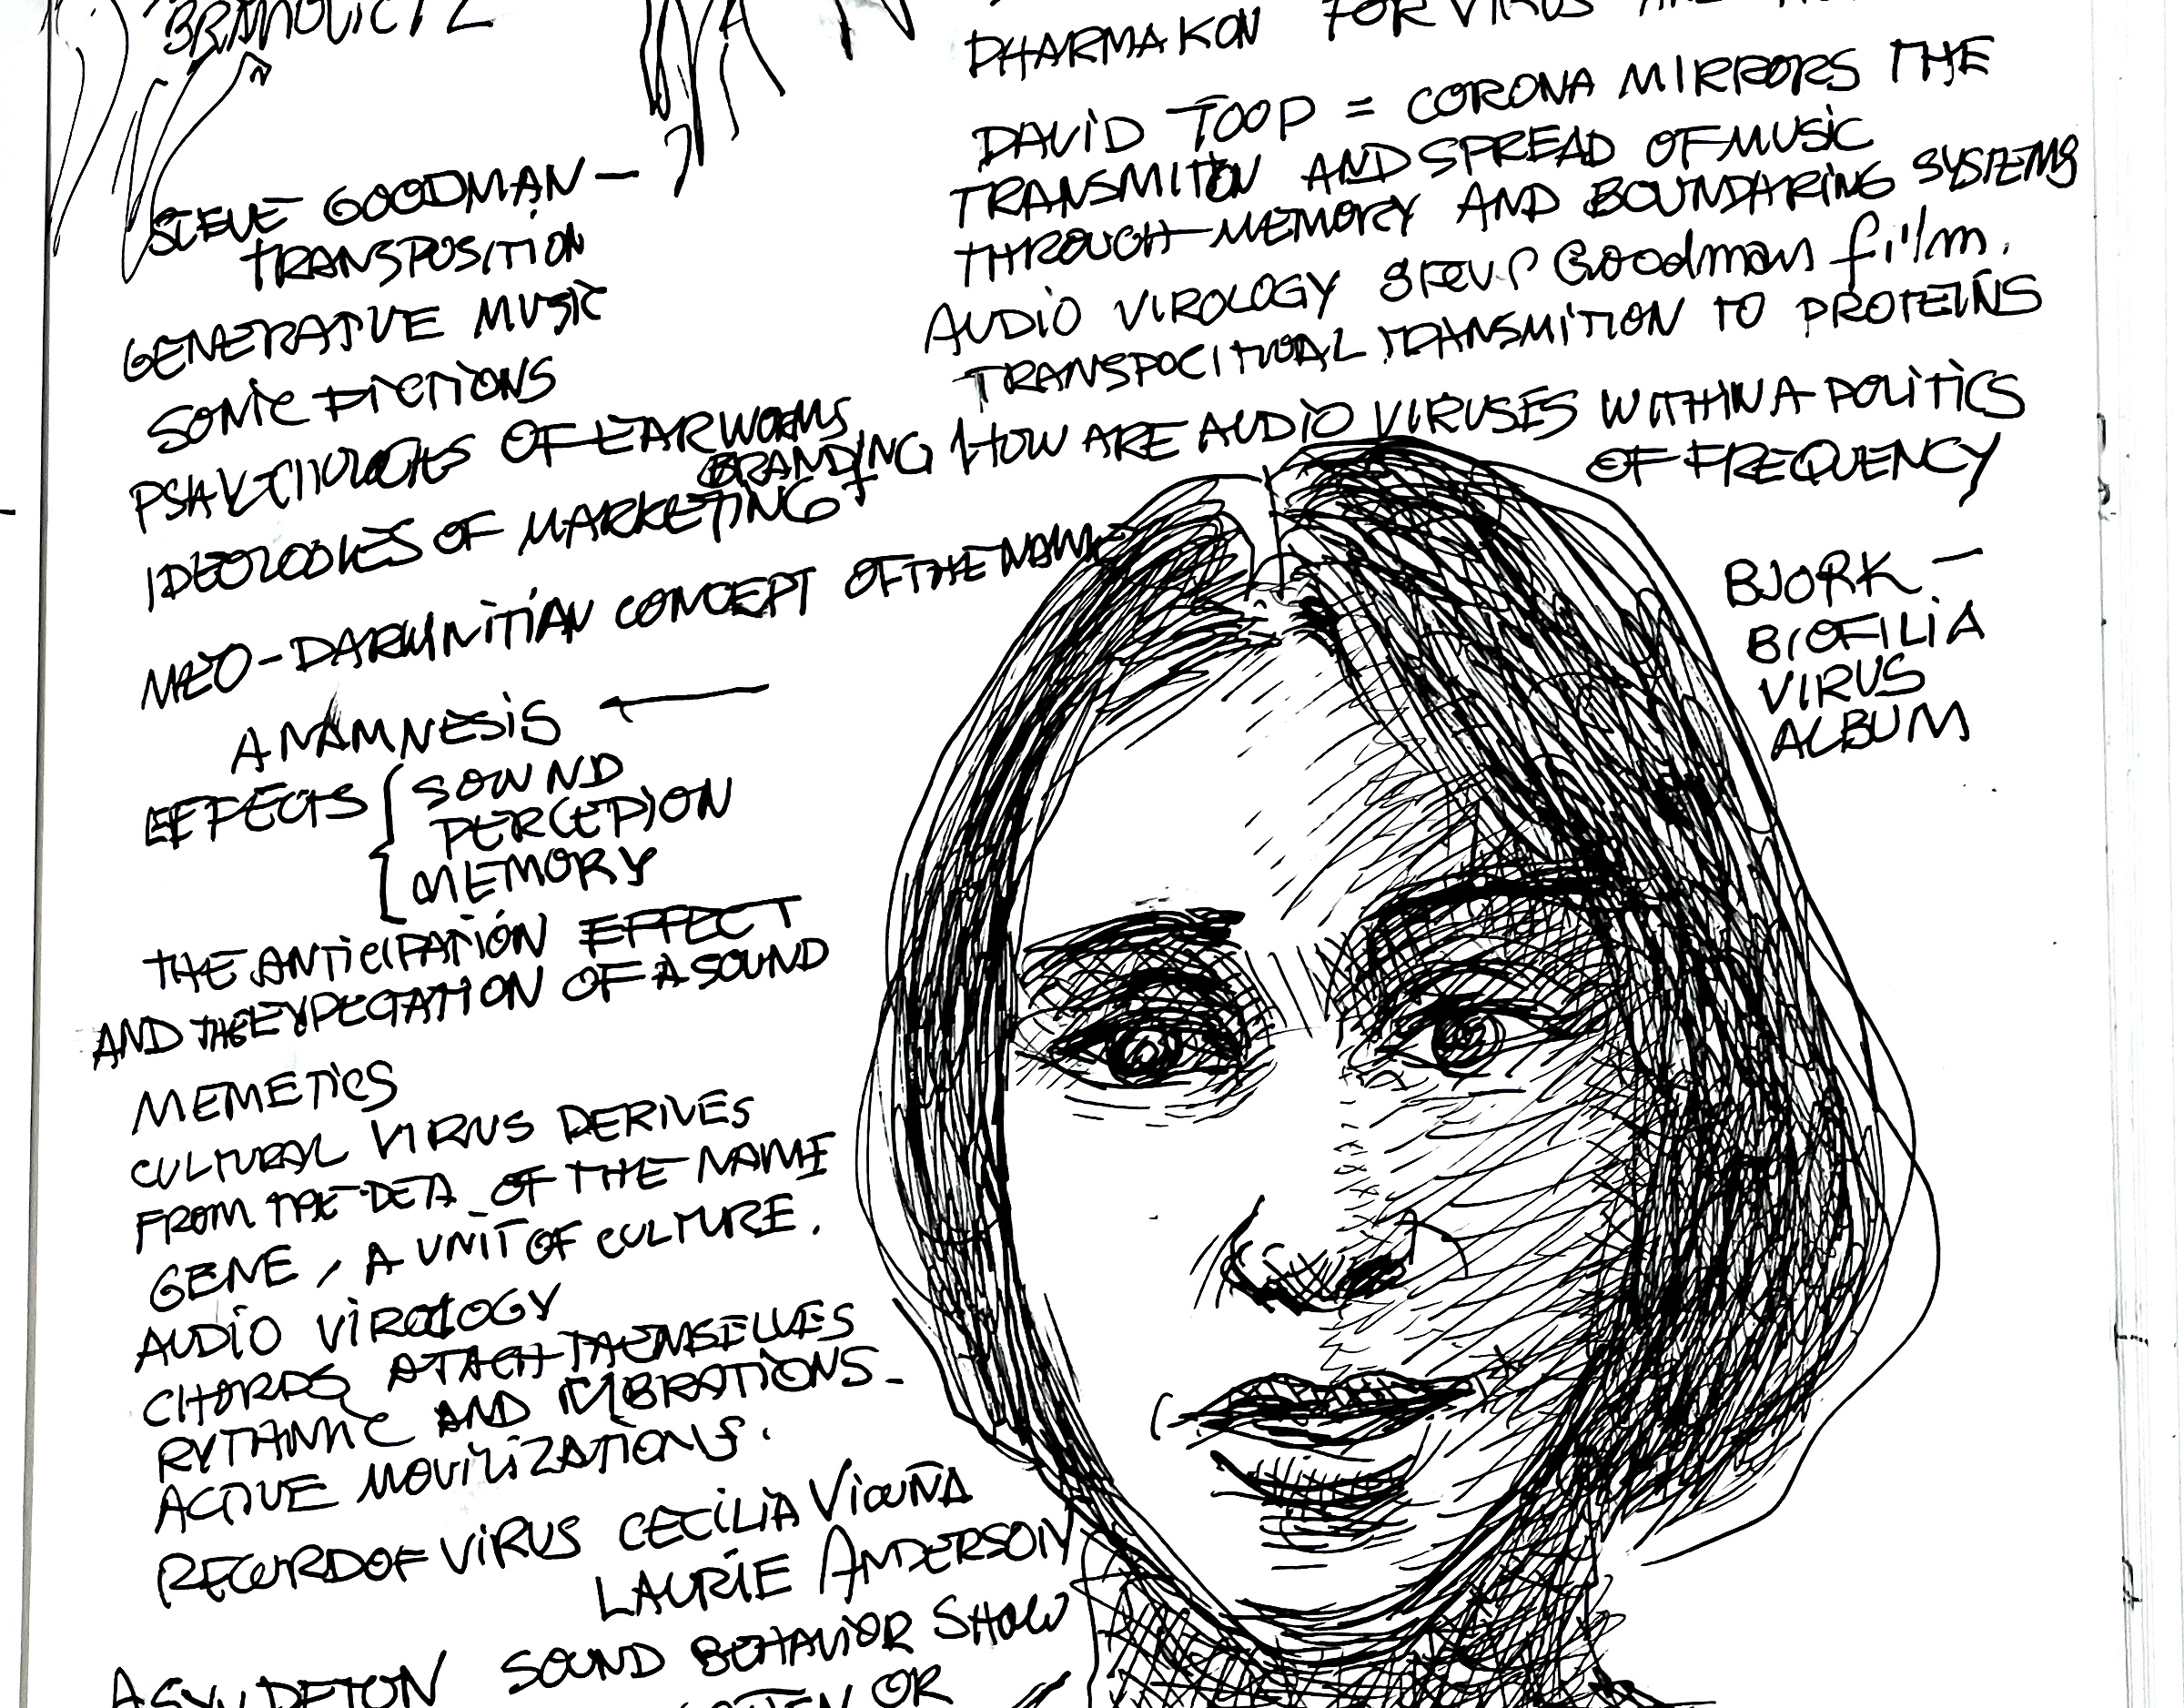 PHARMAKON FOR VIRUS
DAVID TOOP = CORONA MIRRORS THE
TRANSMITION AND SPREAD OF MUSIC
THROUGH MEMORY AND BOUNDARING SYSTEMS
AUDIO VIROLOGY Steve Goodman film.
TRANSPOCITIONAL TRANSMITION TO PROTEINS
HOW ARE AUDIO VIRUSES WITHIN A POLITICS
OF FREQUENCY
BJORK —
BIOFILIA
VIRUS
ALBUM
STEVE GOODMAN —
TRANSPOSITION
GENERATIVE MUSIC
SONIC FICTIONS
OF EARWORMS
BRANDING
OF MARKETING +
NEO-DARWINITIAN CONCEPT OF THE NAME
ANAMNESIS ←
EFFECTS { SOUND
PERCEPTION
MEMORY
THE ANTICIPATIÓN EFFECT
AND THE EXPECTATION OF A SOUND
MEMETICS
CULTURAL VIRUS DERIVES
FROM THE OF THE NAME
GENE, A UNIT OF CULTURE.
AUDIO VIROLOGY
CHORDS ATACH THEMSELVES
RYTHMIC AND VIBRATIONS-
ACTIVE MOVILIZATIONS.
RECORD OF VIRUS CECILIA VICUÑA
LAURIE ANDERSON
ASYNDETON SOUND BEHAVIOR SHOW
OR